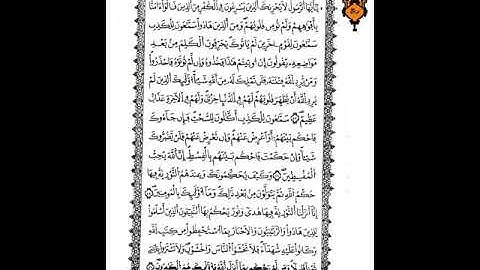 يَٰٓأَيُّهَا ٱلرَّسُولُ لَا يَحْزُنكَ ٱلَّذِينَ يُسَٰرِعُونَ فِي ٱلْكُفْرِ مِنَ ٱلَّذِينَ قَالُوٓا۟ ءَامَنَّا
بِأَفْوَٰهِهِمْ وَلَمْ تُؤْمِن قُلُوبُهُمْ وَمِنَ ٱلَّذِينَ هَادُوا۟ سَمَّٰعُونَ لِلْكَذِبِ
سَمَّٰعُونَ لِقَوْمٍ ءَاخَرِينَ لَمْ يَأْتُوكَ يُحَرِّفُونَ ٱلْكَلِمَ مِنۢ بَعْدِ
مَوَاضِعِهِۦ يَقُولُونَ إِنْ أُوتِيتُمْ هَٰذَا فَخُذُوهُ وَإِن لَّمْ تُؤْتَوْهُ فَٱحْذَرُوا۟
وَمَن يُرِدِ ٱللَّهُ فِتْنَتَهُۥ فَلَن تَمْلِكَ لَهُۥ مِنَ ٱللَّهِ شَيْـًٔا أُو۟لَٰٓئِكَ ٱلَّذِينَ لَمْ
يُرِدِ ٱللَّهُ أَن يُطَهِّرَ قُلُوبَهُمْ لَهُمْ فِي ٱلدُّنْيَا خِزْيٌ وَلَهُمْ فِي ٱلْءَاخِرَةِ عَذَابٌ
عَظِيمٌ سَمَّٰعُونَ لِلْكَذِبِ أَكَّٰلُونَ لِلسُّحْتِ فَإِن جَآءُوكَ
فَٱحْكُم بَيْنَهُمْ أَوْ أَعْرِضْ عَنْهُمْ وَإِن تُعْرِضْ عَنْهُمْ فَلَن يَضُرُّوكَ
شَيْـًٔا وَإِنْ حَكَمْتَ فَٱحْكُم بَيْنَهُم بِٱلْقِسْطِ إِنَّ ٱللَّهَ يُحِبُّ
ٱلْمُقْسِطِينَ وَكَيْفَ يُحَكِّمُونَكَ وَعِندَهُمُ ٱلتَّوْرَىٰةُ فِيهَا
حُكْمُ ٱللَّهِ ثُمَّ يَتَوَلَّوْنَ مِنۢ بَعْدِ ذَٰلِكَ وَمَآ أُو۟لَٰٓئِكَ بِٱلْمُؤْمِنِينَ
إِنَّآ أَنزَلْنَا ٱلتَّوْرَىٰةَ فِيهَا هُدًى وَنُورٌ يَحْكُمُ بِهَا ٱلنَّبِيُّونَ ٱلَّذِينَ أَسْلَمُوا۟
لِلَّذِينَ هَادُوا۟ وَٱلرَّبَّٰنِيُّونَ وَٱلْأَحْبَارُ بِمَا ٱسْتُحْفِظُوا۟ مِن كِتَٰبِ ٱللَّهِ
وَكَانُوا۟ عَلَيْهِ شُهَدَآءَ فَلَا تَخْشَوُا۟ ٱلنَّاسَ وَٱخْشَوْنِ وَلَا تَشْتَرُوا۟
بِـَٔايَٰتِي ثَمَنًا قَلِيلًا وَمَن لَّمْ يَحْكُم بِمَآ أَنزَلَ ٱللَّهُ فَأُو۟لَٰٓئِكَ هُمُ ٱلْكَٰفِرُونَ